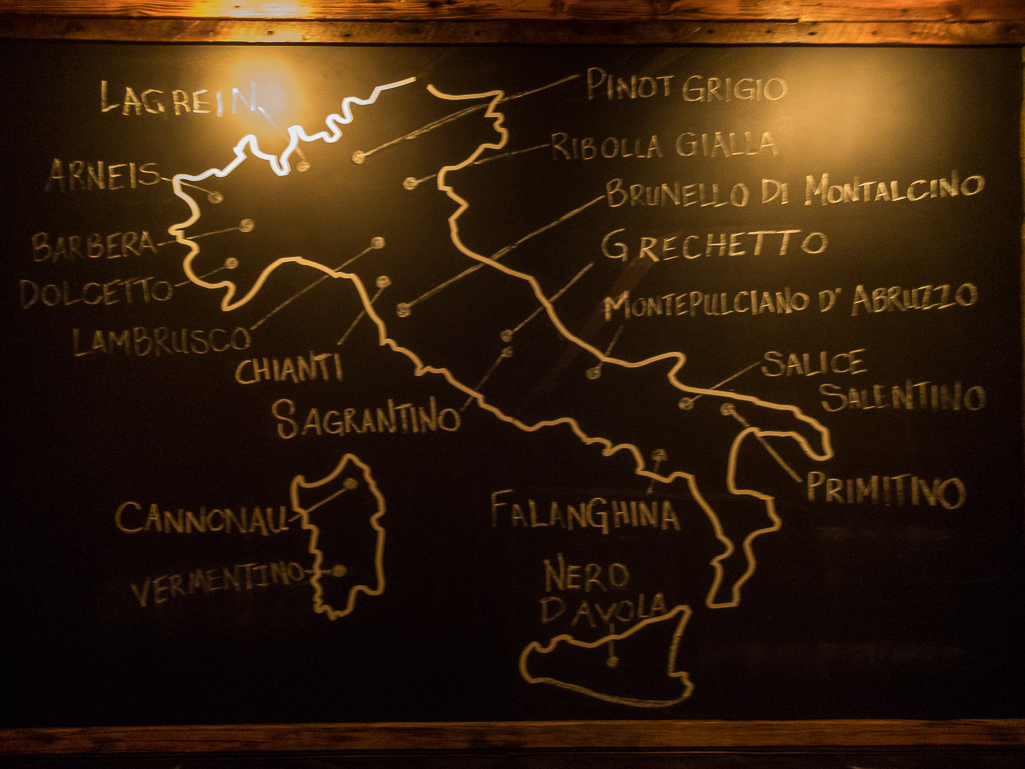 LAGREIN
PINOT GRIGIO
RIBOLLA GIALLA
ARNEIS
BRUNELLO DI MONTALCINO
BARBERA
GRECHETTO
DOLCETTO
MONTEPULCIANO D'ABRUZZO
LAMBRUSCO
CHIANTI
SALICE
SALENTINO
SAGRANTINO
PRIMITIVO
CANNONAU
FALANGHINA
VERMENTINO
NERO
D AVOLA